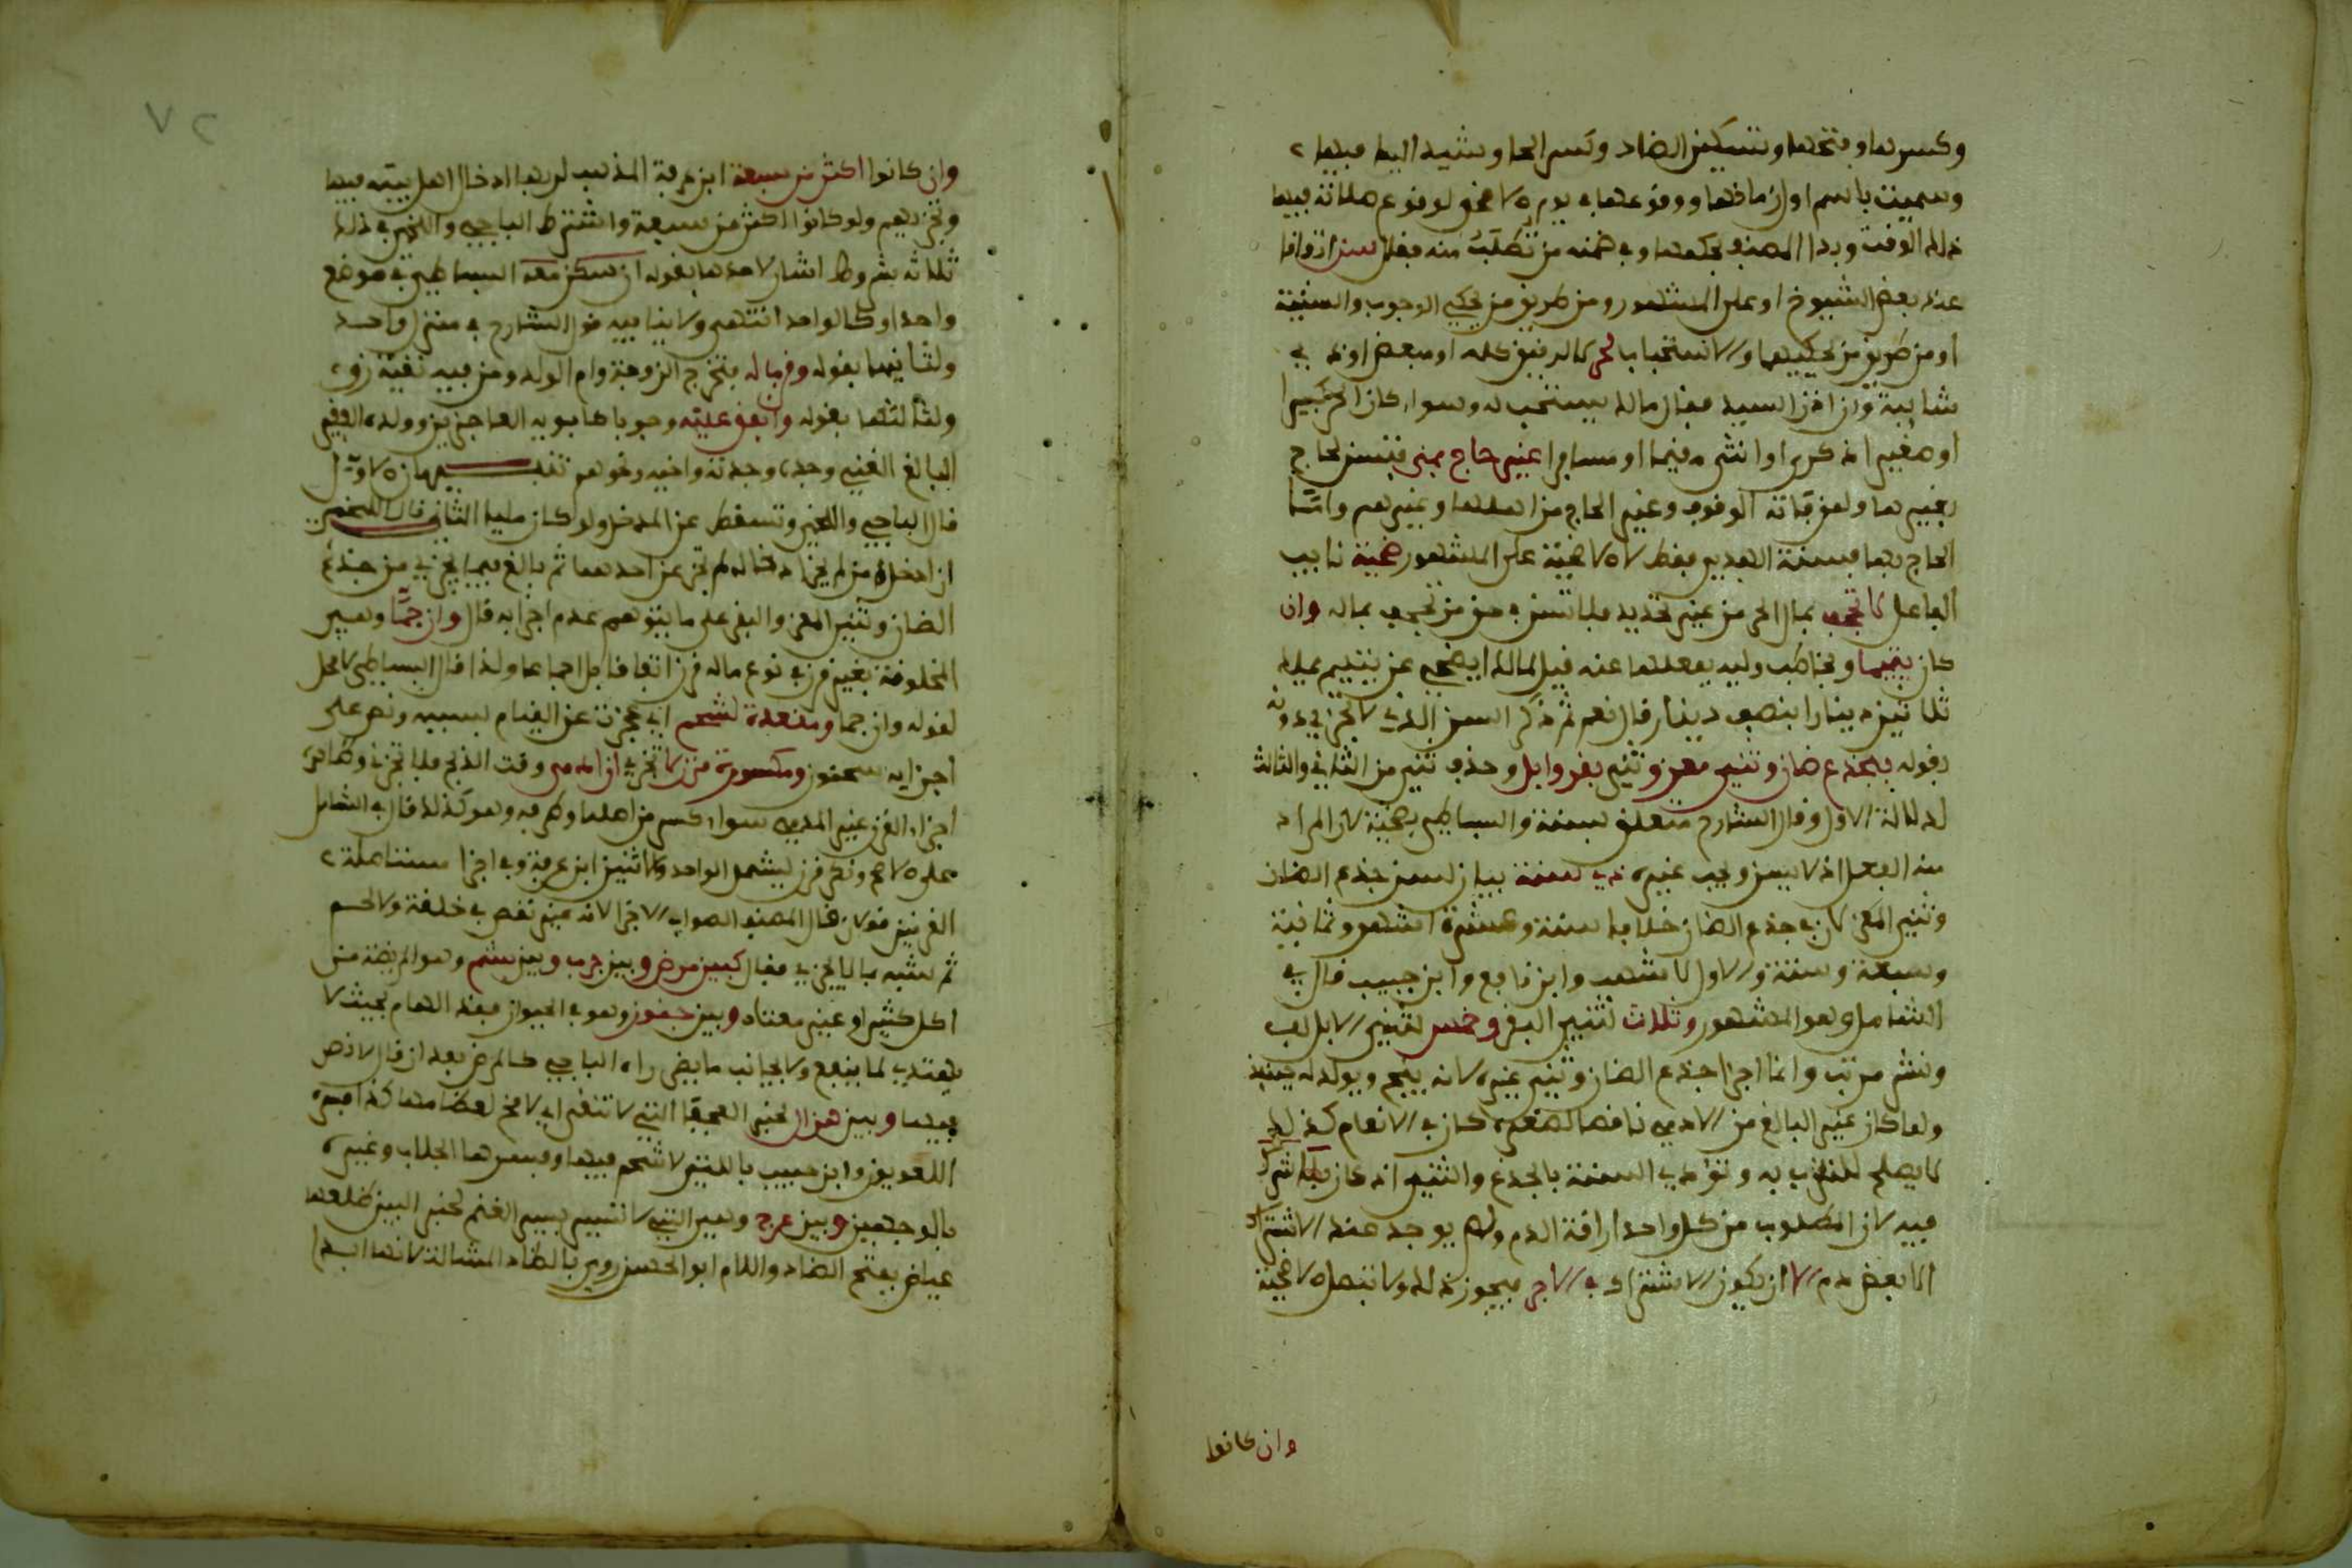 وكسرها وفتحها وتسكين الضاد وكسر الحا وشيد اليا فيها
وسميت باسم اول زمانها ووقوعها في يوم الاضحى لوقوع صلاته فيها
ذلك الوقت وبدا المصنف بحكمها وفي ضمنه من تطلب منه فقال سن اتفاقا
عند بعض الشيوخ او على المشهور ومن طريق من يحكي الوجوب والسنية
او من طريق من يحكيهما والاستحباب لحر لا لرقيق كله او بعض او ذي
شايبة وان اذن السيد فقال مالك يستحب له وسواء كان الحر كبيرا
او صغيرا ذكرا او انثى مقيما او مسافرا غير حاج بمنى فتسن لحاج
بغيرها ولمن فاته الوقوف وغير الحاج من اهلها وغيرهم واما
الحاج بها فسنته الهدي فقط لا الاضحية على المشهور ضحية نايب
الفاعل لا تجحف بمال الحر من غير تحديد فلا تسن في حق من تجحف بماله وان
كان يتيما ويخاطب وليه بفعلها عنه قيل لمالك ايضحى عن يتيم يملك
ثلاثين دينارا بنصف دينار قال نعم ثم ذكر السن الذي لا يجزي دونه
بقوله بجذع ضان وثني معز وثني بقر وابل وحذف ثني من الثاني والثالث
لدلالة الاول وقال الشارح متعلق بسنة والبساطي بضحية لان المراد
منه الفعل اذ لا يسن ويجب غيره ذي سنة بيان لسن جذع الضان
وثني المعز لان في جذع الضان خلافا سنة وعشرة اشهر وثمانية
وسبعة وستة والاول لاشهب وابن نافع وابن حبيب قال في
الشامل وهو المشهور وثلاث لثني البقر وخمس لثني الابل لف
ونشر مرتب وانما اجزا جذع الضان وثني غيره لانه ينتج ويولد له حينئذ
ولما كان غير البالغ من الادمي ناقصا لصغره كان في الانعام كذلك
لا يصلح للتقرب به وتؤدي السنة بالجذع والثني اذ كان بلا شرك
فيه لان المطلوب من كل واحد اراقة الدم ولم يوجد عند الاشتراك
الا بعض دم الا ان يكون الاشتراك في الاجر فيجوز ذلك ولا تبطل الاضحية
وان كانوا
٧٢
وان كانوا اكثر من سبعة ابن عرفة المذهب لربها ادخال اهل بيته فيها
وتجزيهم ولو كانوا اكثر من سبعة واشترط الباجي واللخمي في ذلك
ثلاثة شروط اشار لاحدها بقوله ان سكن معه البساطي في موضع
واحد او كالواحد انتهى ولا ينافيه قول الشارح في منزل واحد
ولثانيها بقوله وقرب له فتخرج الزوجة وام الولد ومن فيه بقية رق
ولثالثها بقوله وانفق عليه وجوبا كابويه العاجزين وولده الفقير
البالغ الغني وجده وجدته واخيه ونحوهم تنبيهان الاول
قال الباجي واللخمي وتسقط عن المدخل ولو كان مليا الثاني قال اللخمي
ان ادخل من لم يجز ادخاله لم تجز عن احدهما ثم بالغ فيما يجزي من جذع
الضان وثني المعز والبقر على ما يتوهم عدم اجزايه قال وان جما وهي
المخلوقة بغير قرن في نوع ماله قرن اتفاقا بل اجماعا ولذا قال البساطي لا محل
لقوله وان جما ومقعدة لشحم اي عجزت عن القيام لسببه ونص على
اجزايه سحنون ومكسورة قرن لا تجزي ان ادمى وقت الذبح فلا تجزي وظاهره
اجزاء القرن غير المدمي سواء كسر من اصله او طرفه وهو كذلك قال في الشامل
على الاصح ونكر قرن ليشمل الواحد والاثنين ابن عرفة وفي اجزا مستاصلة
القرنين قولان قال المصنف الصواب الاجزا لانه غير نقص في خلقة ولا لحم
ثم شبه بما لا يجزي فقال كبين مرض وبين جرب وبين بشم وهو المريضة من
اكل كثير او غير معتاد وبين جنون وهو في الحيوان فقد الهام بحيث لا
يهتدي لما ينفع ولا يجانب ما يضر راه الباجي كالمرض بعد ان قال لا نص
فيها وبين هزال لخبر العجفا التي لا تنقي اي لا مخ لعظامها كذا فسره
اللغويون وابن حبيب بالتي لا شحم فيها وفسرها الجلاب وغيره
بالوجهين وبين عرج وهي التي لا تسير بسير الغنم لخبر البين ظلعها
عياض بفتح الضاد واللام ابو الحسن روي بالظاد المشالة لانها ابدا